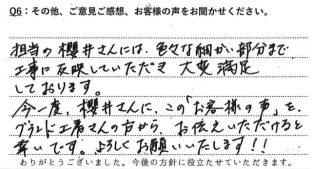 Q6：その他、ご意見ご感想、お客様の声をお聞かせください。
担当の櫻井さんには、色々な細かい部分まで
工事に反映していただき 大変満足
しております。
今一度、櫻井さんに、この「お客様の声」を、
グランド工房さんの方から、お伝えいただけると
幸いです。よろしくお願いいたします！！
ありがとうございました。今後の方針に役立たせていただきます。